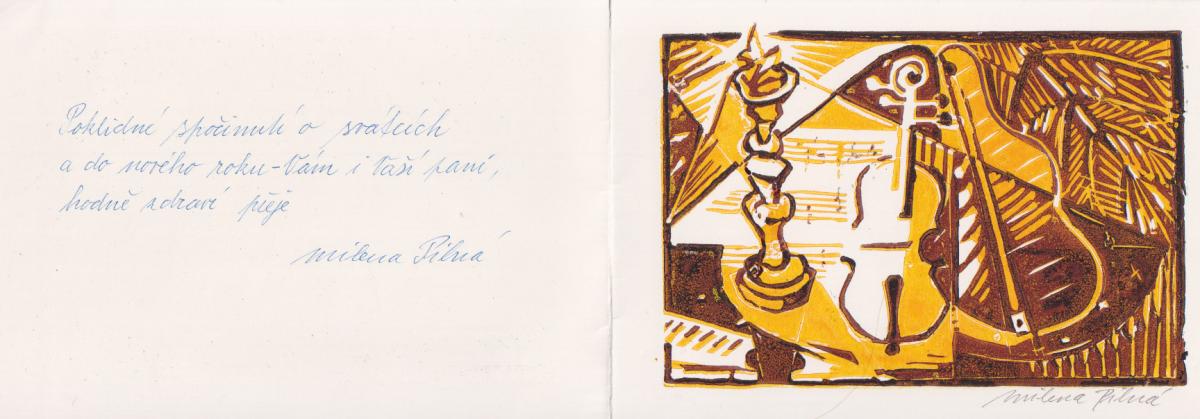 Poklidné spočinutí o svátcích
a do nového roku - Vám i Vaší paní,
hodně zdraví přeje
Milena Pilná
Milena Pilná